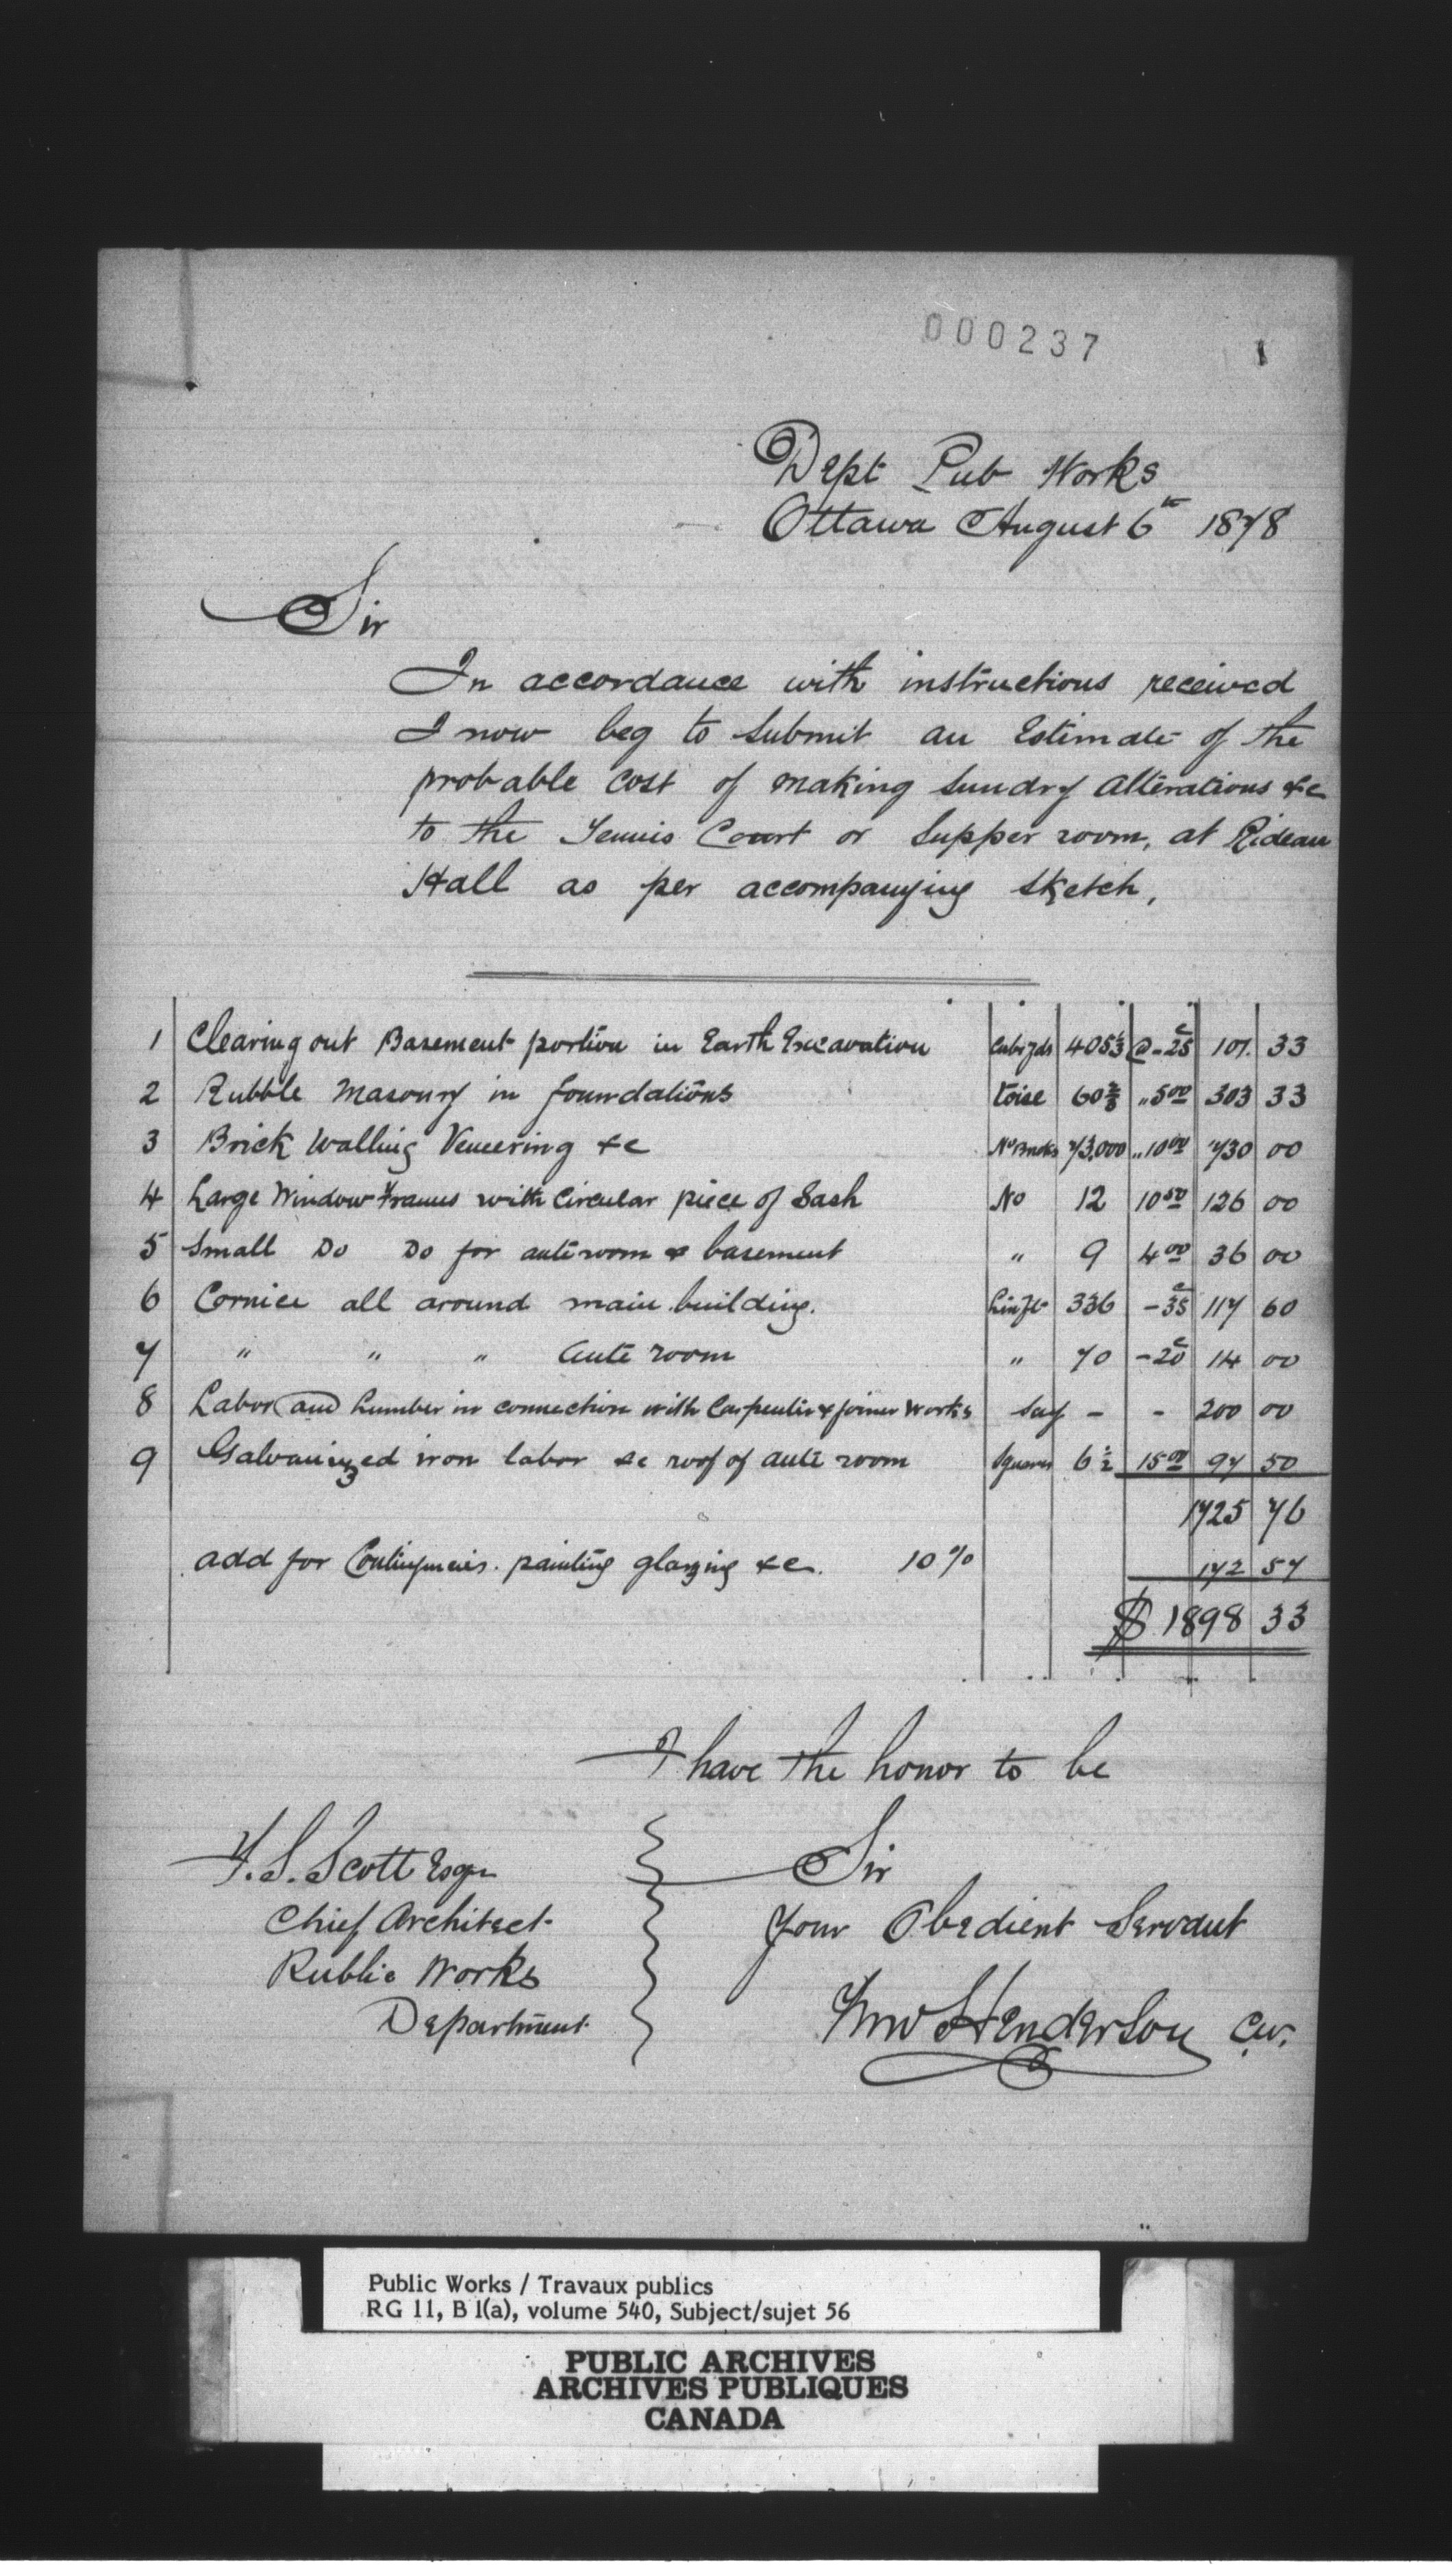 000237
1
Dept Pub Works
Ottawa August 6th 1878
Sir
In accordance with instructions received
I now beg to submit an Estimate of the
probable cost of making sundry alterations &c
to the Tennis Court or Supper room, at Rideau
Hall as per accompanying sketch,
1 Clearing out Basement portion in Earth Excavation Cubc yds 405⅓ @ - 25c 101. 33
2 Rubble Masonry in foundations toise 60⅔ " 5 00 303 33
3 Brick Walling Veneering &c No Bricks 73,000 " 10 00 730 00
4 Large Window Frames with Circular piece of Sash No 12 10 50 126 00
5 Small Do Do for anteroom & basement " 9 4 00 36 00
6 Cornice all around main building. Lin ft 336 - 35c 117 60
7 " " " Ante room " 70 - 20c 14 00
8 Labor and Lumber in connection with Carpenter & joiner Works Say - - 200 00
9 Galvanized iron labor &c roof of ante room Squares 6½ 15 00 97 50
1725 76
add for Contingencies. painting glazing &c. 10% 172 57
$ 1898 33
I have the honor to be
Sir
Your Obedient Servant
Wm Henderson C.W.
T. S. Scott Esqr
Chief Architect
Public Works
Department
Public Works / Travaux publics
RG 11, B 1(a), volume 540, Subject/sujet 56
PUBLIC ARCHIVES
ARCHIVES PUBLIQUES
CANADA